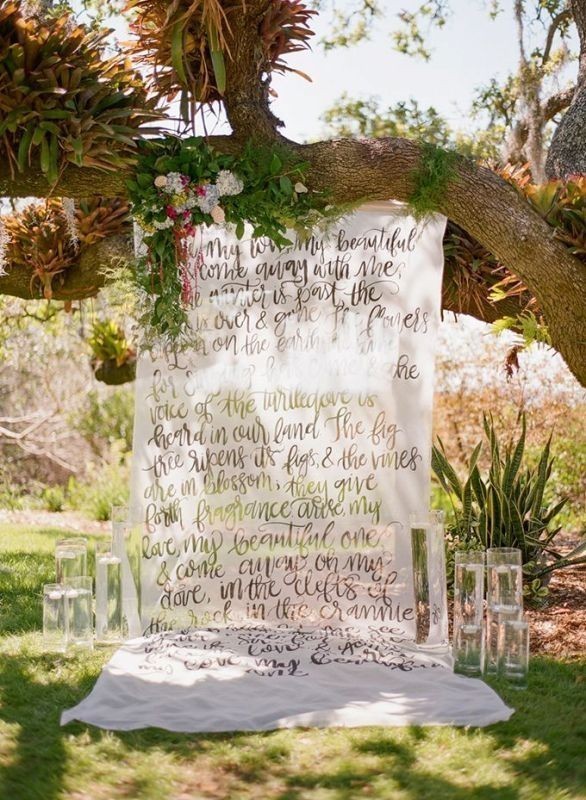 my love, my beautiful
come away with me,
winter is past the
is over & gone The flowers
on the earth
for & the
voice of the turtledove is
heard in our land The fig
tree ripens its figs, & the vines
are in blossom; they give
forth fragrance arise, my
love, my beautiful one
& come away oh my
dove, in the clefts of
the rock, in the crannie
see
love
my love my beautiful